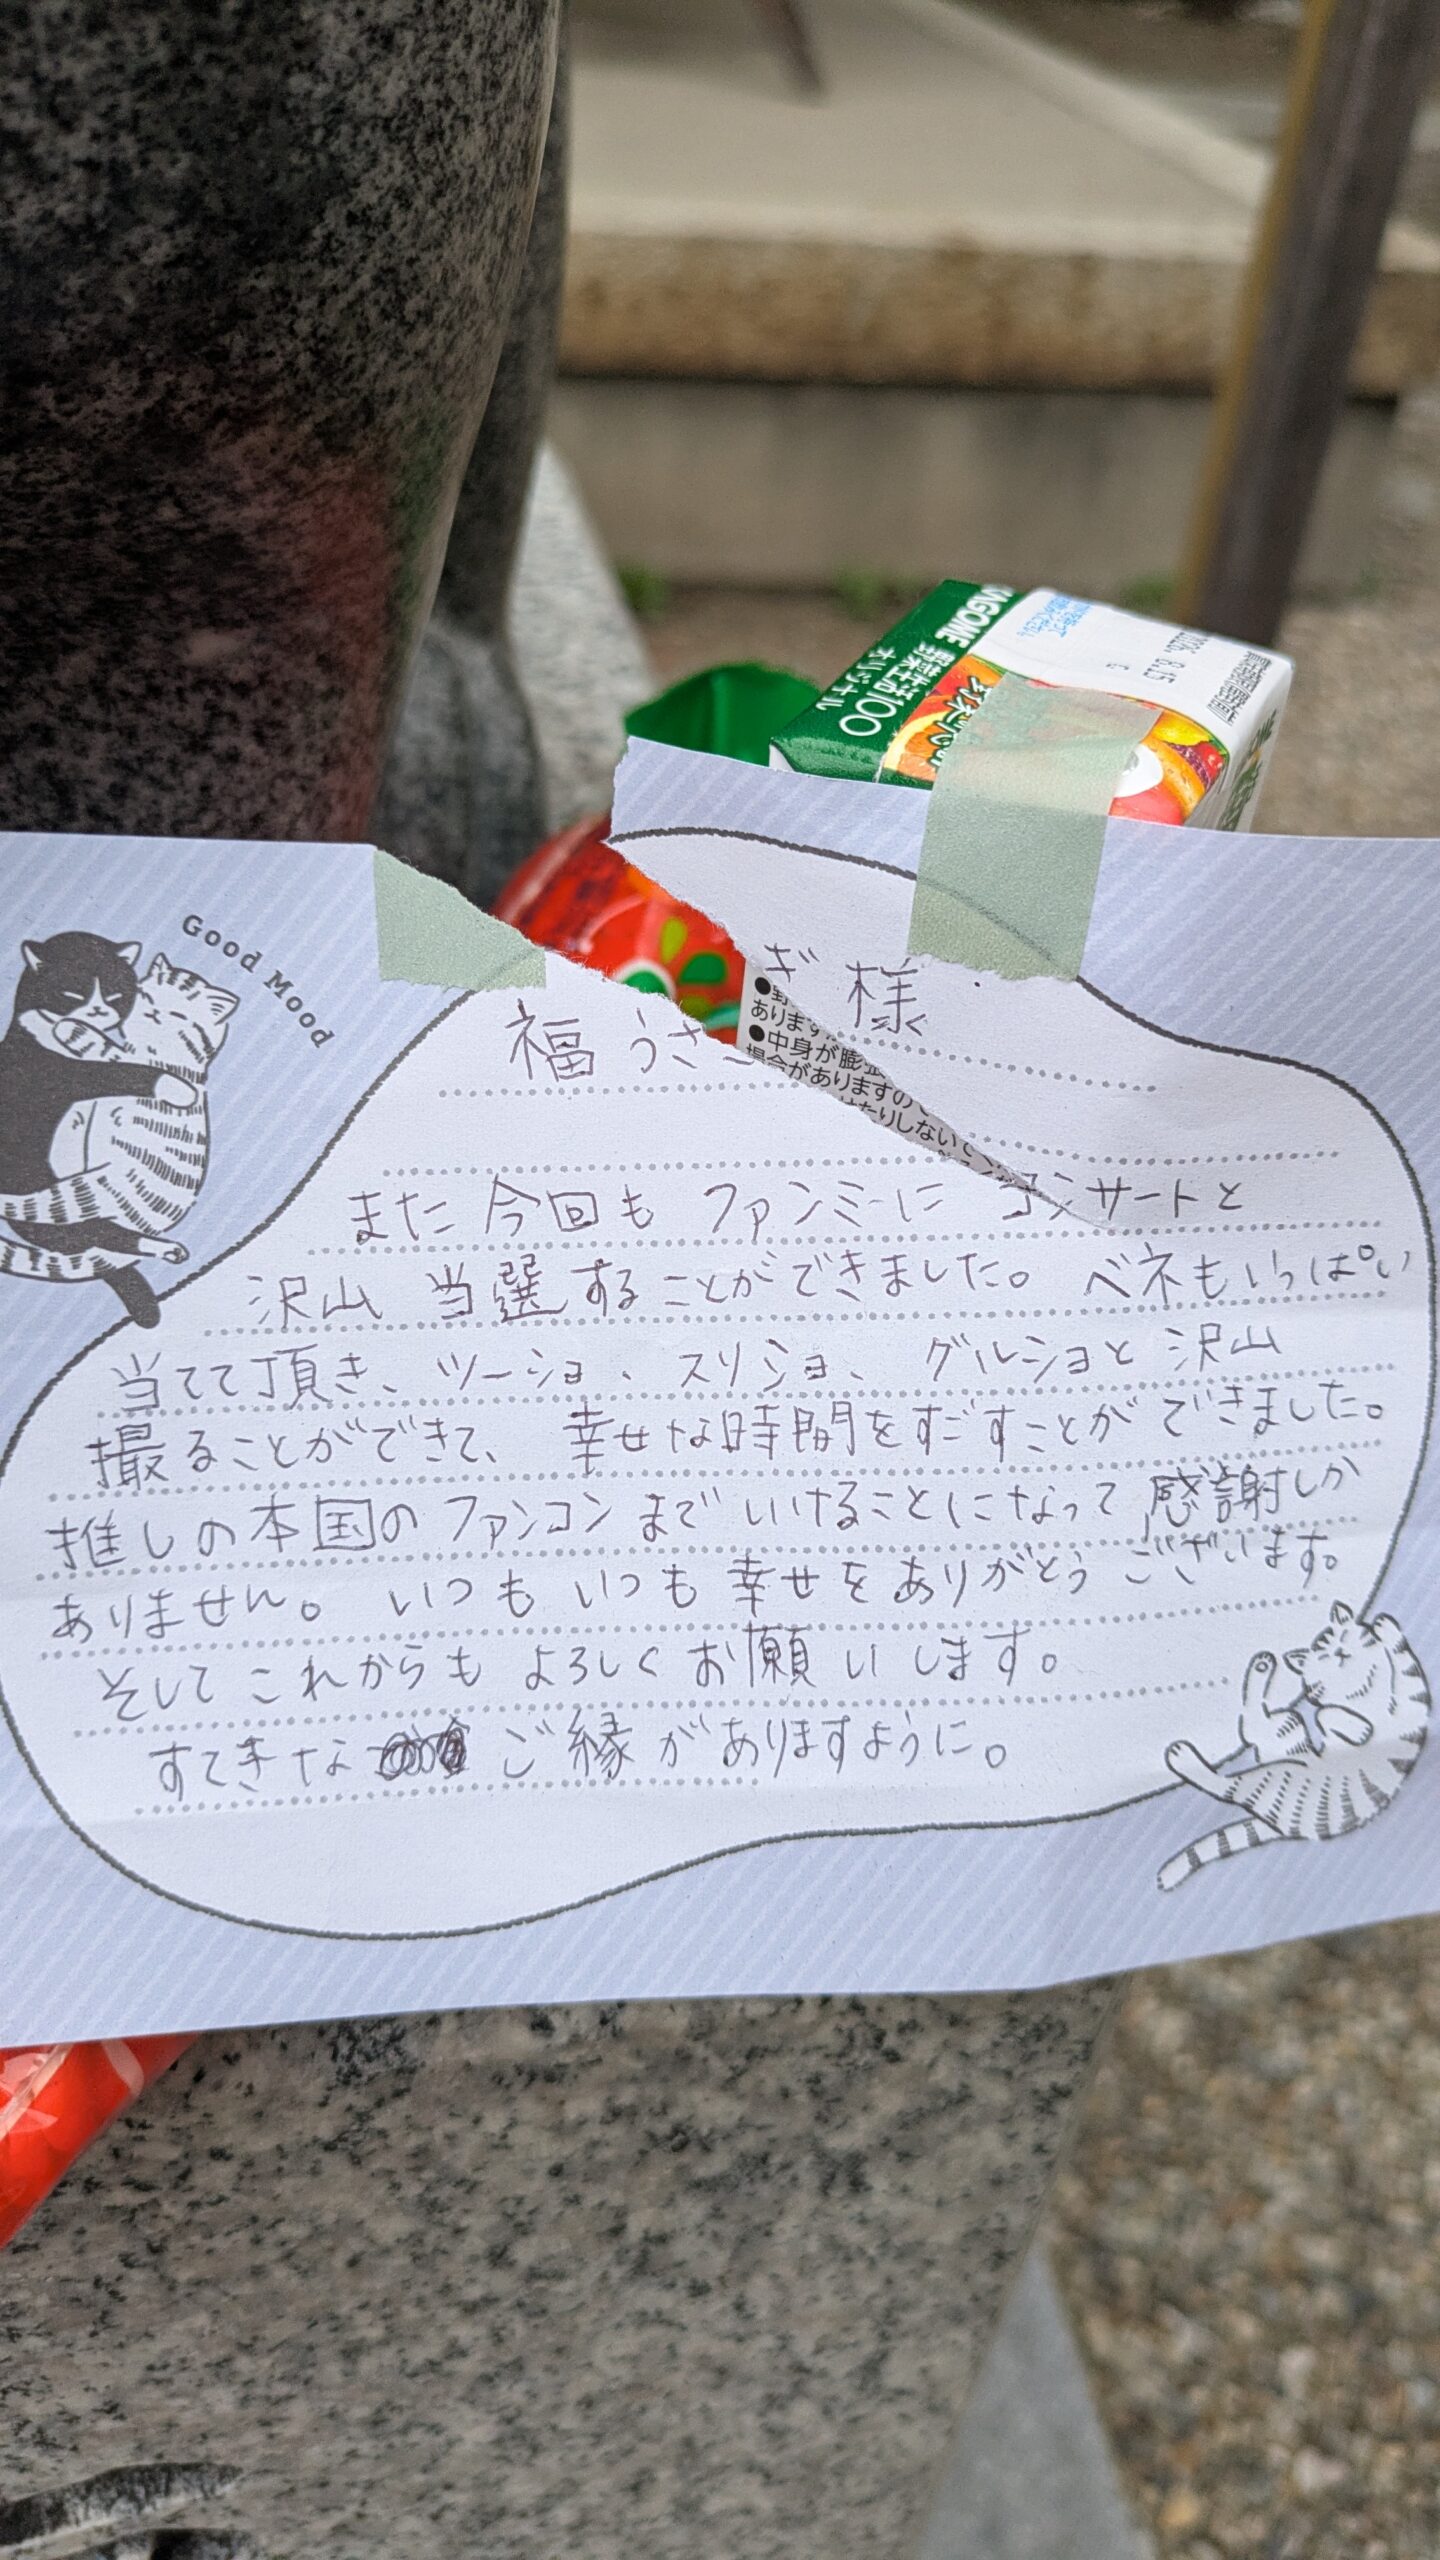 KAGOME 野菜生活100
オリジナル
8.15
G
Good Mood
福 うさぎ 様
あります
●中身が膨張
場合がありますので
また 今回も ファンミーに コンサートと
沢山 当選することができました。 ベネもいっぱい
当てて頂き、ツーショ、スリショ、グルショと沢山
撮ることができて、幸せな時間をすごすことができました。
推しの本国のファンコンまでいけることになって感謝しか
ありません。いつもいつも幸せをありがとうございます。
そしてこれからもよろしくお願いします。
すてきな ご縁がありますように。